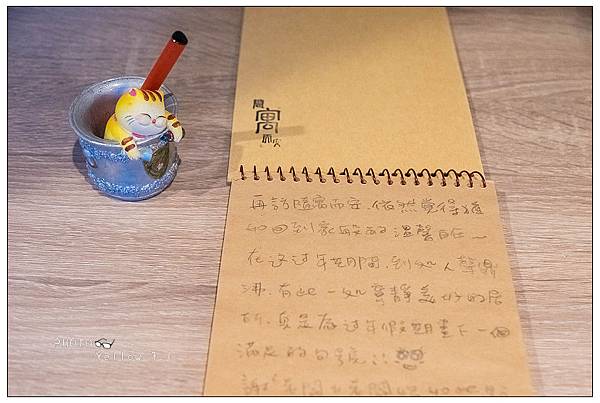 寓
再訪隨寓而安、依然覺得猶
如回到家般的溫馨自在～
在這过年期間,到処人聲鼎
沸,有此一処寧靜美好的居
所,真是為过年假期畫下一個
滿足的句號!!
謝謝老闆
Photo
Yellow